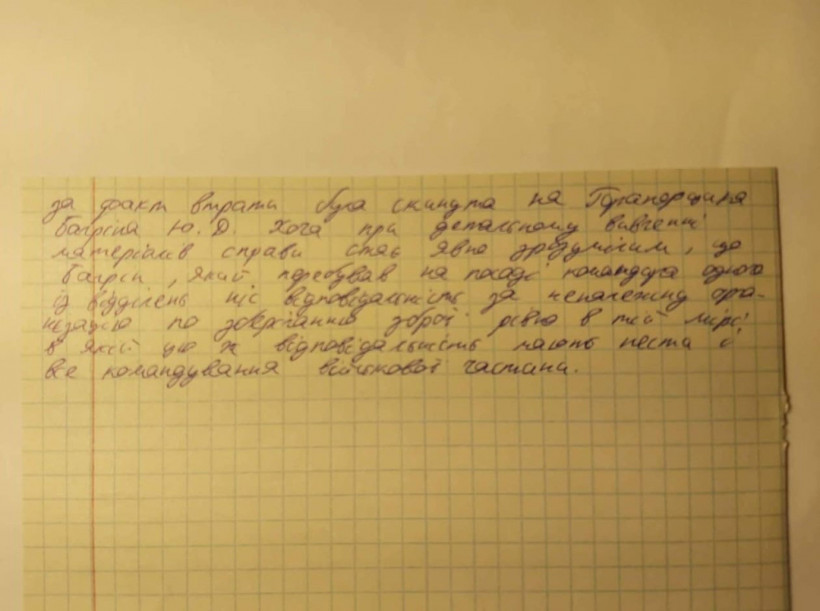 за факт втрати була скинута на Прапорщика
Багрія Ю. Д. Хоча при детальному вивченні
матеріалів справи стає явно зрозумілим, що
Багрій, який перебував на посаді командира одного
із відділень ніс відповідальність за неналежну орга-
нізацію по зберіганню зброї рівно в тій мірі
в якій цю ж відповідальність мають нести і
все командування військової частини.